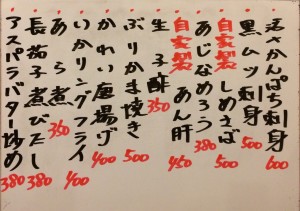 活かんぱち刺身 600
黒ムツ刺身 500
自家製しめさば 500
あじなめろう 380
自家製あん肝 450
生子酢 350
ぶりかま焼き 500
かれい唐揚げ 400
いかリングフライ 400
あら煮 350
長茄子煮びたし 380
アスパラバター炒め 380